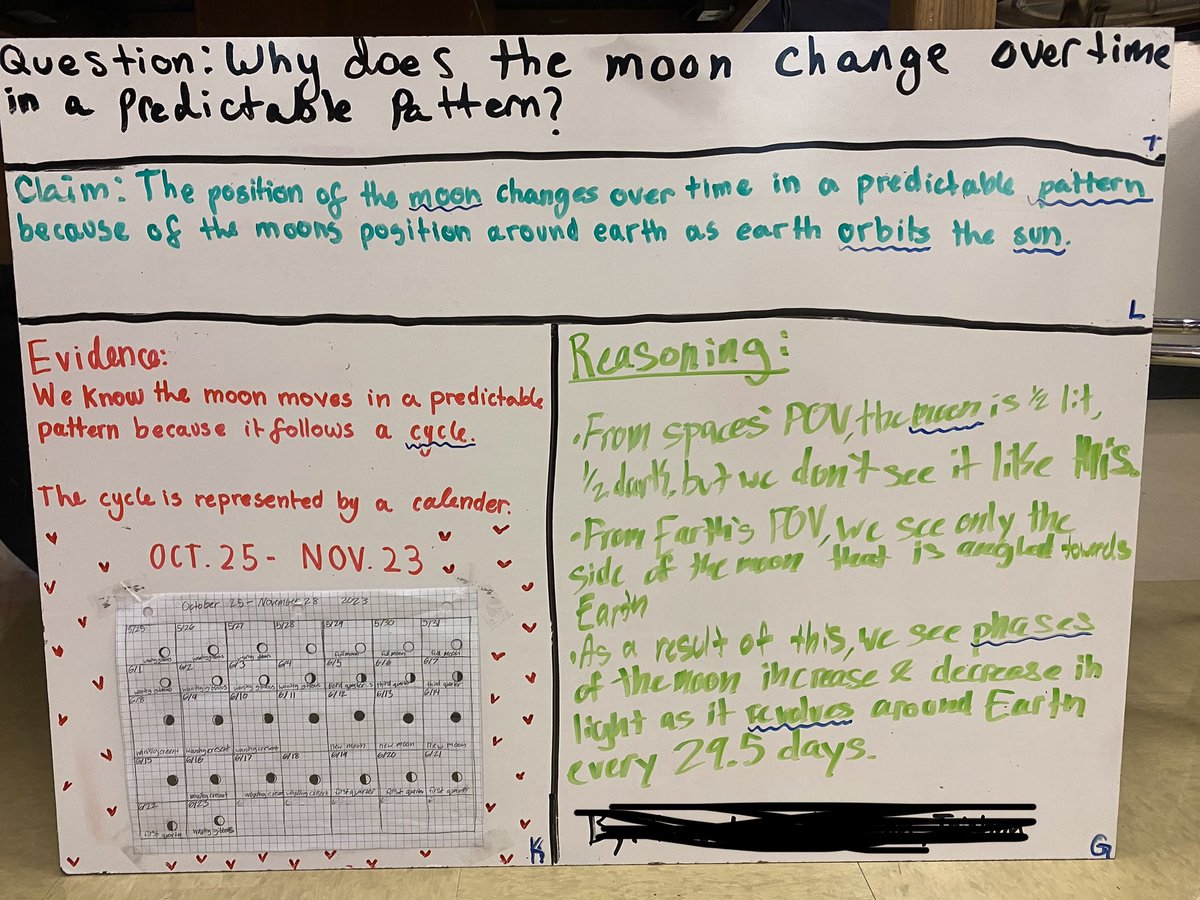 Question: Why does the moon change overtime
in a predictable pattern?
T
Claim: The position of the moon changes over time in a predictable pattern
because of the moons position around earth as earth orbits the sun.
L
Evidence:
We know the moon moves in a predictable
pattern because it follows a cycle.
The cycle is represented by a calender.
OCT. 25 - NOV. 23
October 25 - November 28 2023
5/25 5/26 5/27 5/28 5/29 5/30 5/31
full moon full moon full moon
6/1 6/2 6/3 6/4 6/5 6/6 6/7
third quarter third quarter
6/8 6/9 6/10 6/11 6/12 6/13 6/14
new moon new moon new moon
6/15 6/16 6/17 6/18 6/19 6/20 6/21
first quarter first quarter first quarter
6/22 6/23
first quarter
K
Reasoning:
• From spaces' POV, the moon is 1/2 lit,
1/2 dark, but we don't see it like this.
• From Earth's POV, we see only the
side of the moon that is angled towards
Earth
• As a result of this, we see phases
of the moon increase & decrease in
light as it revolves around Earth
every 29.5 days.
G